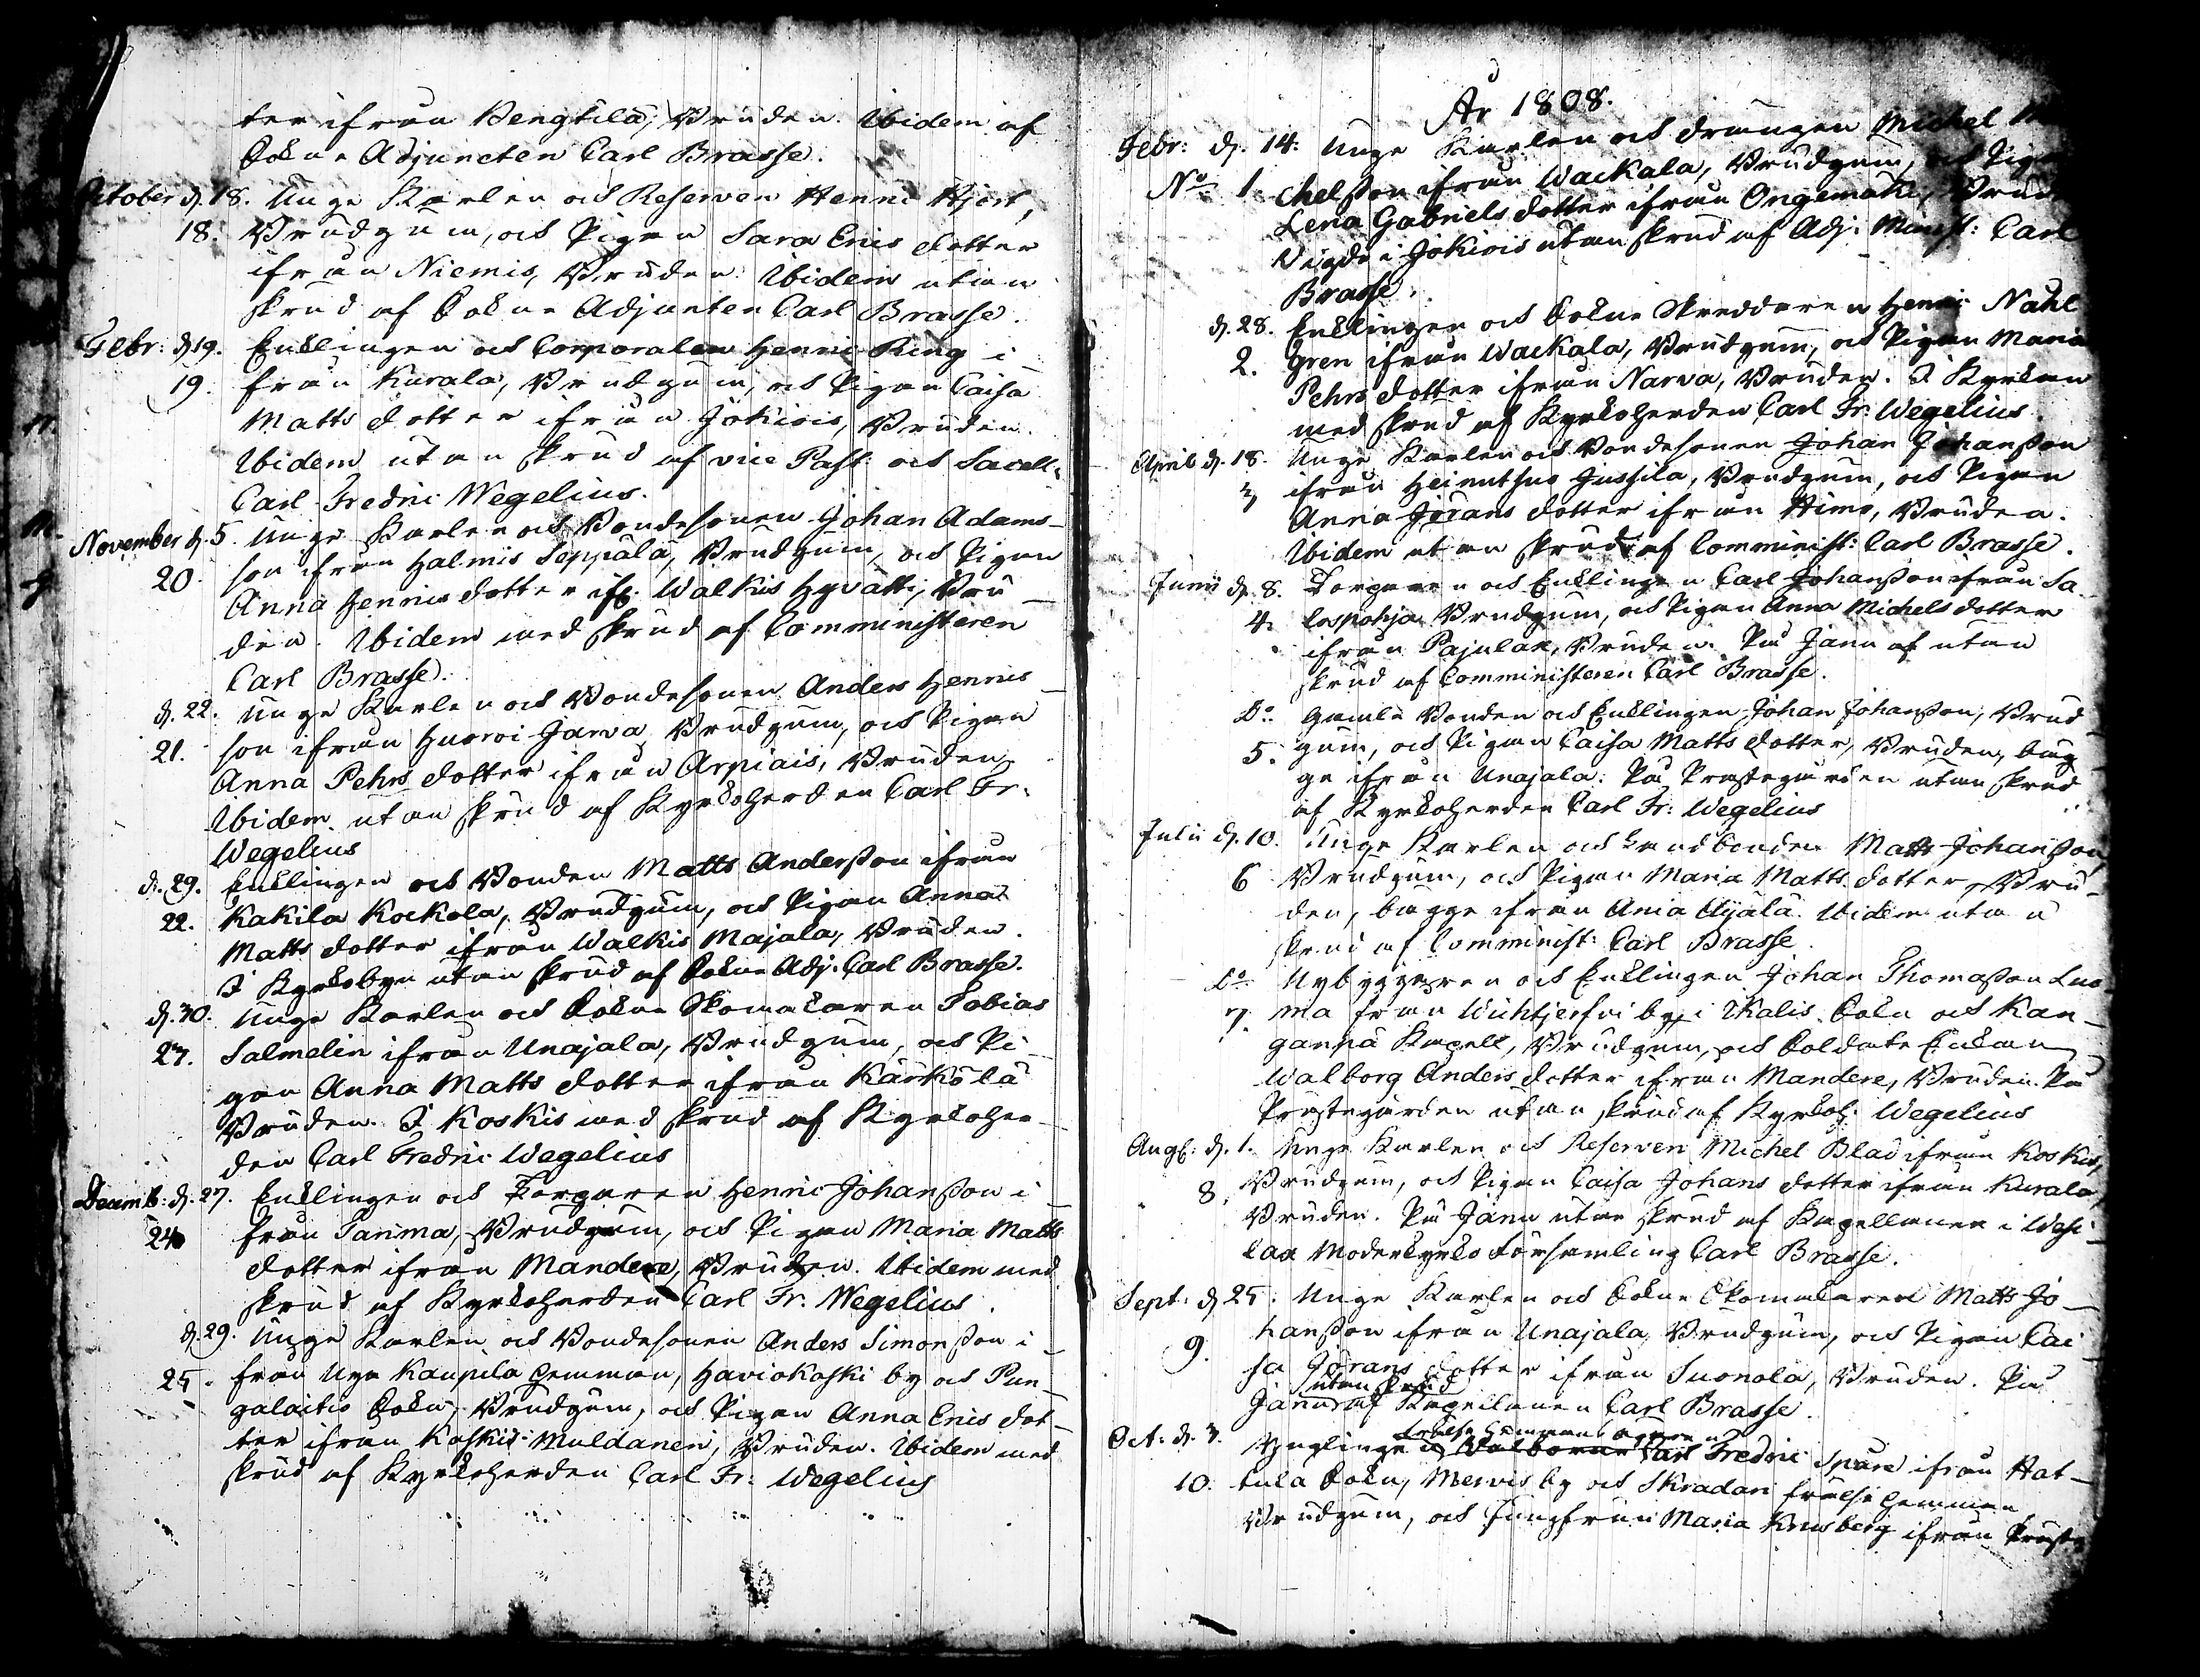 ter ifrån Bengtilä, Bruden. Ibidem af
Sokne Adjuncten Carl Brasse.
October d. 18. Unge Karlen och Reserven Henric Hjert,
18. Brudgum, och Pigan Sara Erics dotter
ifrån Niemis, Bruden. Ibidem utan
skrud af Sokne Adjunten Carl Brasse.
Febr: d 19. Enklingen och Corporalen Henric Ring i
19. från Kurala, Brudgum, och Pigan Caisa
Matts dotter ifrån Jokiois, Bruden.
Ibidem utan skrud af vice Past: och Sacell:
Carl Fredric Wegelius.
November d. 5. Unge Karlen och Bondesonen Johan Adams-
20. son ifrån Halmis Seppälä, Brudgum, och Pigan
Anna Hennis dotter ifr. Walkis Hyvätti, Bru-
den. Ibidem med skrud af Comministeren
Carl Brasse.
d. 22. Unge Karlen och Bondesonen Anders Hennis-
21. son ifrån Huovoi Jarva, Brudgum, och Pigan
Anna Pehrs dotter ifrån Arpiais, Bruden,
Ibidem utan skrud af Kyrkoherden Carl Fr.
Wegelius
d. 29. Enklingen och Bonden Matts Andersson ifrån
22. Kakila Kockola, Brudgum, och Pigan Anna
Matts dotter ifrån Walkis Majala, Bruden.
I Kyrkobyn utan skrud af Sokne Adj: Carl Brasse.
d. 30. Unge Karlen och Sokne Skomakaren Tobias
23. Salmelin ifrån Unajala, Brudgum, och Pi-
gan Anna Matts dotter ifrån Kärkölä
Bruden. I Koskis med skrud af Kyrkoher-
den Carl Fredric Wegelius
Decemb: d. 27. Enklingen och Torparen Henric Johansson i-
24 från Tanima, Brudgum, och Pigan Maria Matts
dotter ifrån Mandere, Bruden. Ibidem med
skrud af Kyrkoherden Carl Fr. Wegelius.
d. 29. Unge Karlen och Bondesonen Anders Simonsson i-
25. från Nya Kaupila hemman, Haviokoski by och Pun-
galaitio Sokn, Brudgum, och Pigan Anna Erics dot-
ter ifrån Koskis Muldanen, Bruden. Ibidem med
skrud af Kyrkoherden Carl Fr: Wegelius
År 1808.
Febr: d. 14. Unge Karlen och drängen Michel Mi
No 1. chelsson ifrån Wackala, Brudgum, och Pigan
Lena Gabriels dotter ifrån Ongemäki, Bruden
Vigde i Jokiois utan skrud af Adj: Minist: Carl
Brasse.
d. 28. Enklingen och Sokne Skreddaren Henric Nahl
2. gren ifrån Wackala, Brudgum, och Pigan Maria
Pehrs dotter ifrån Narva, Bruden. I Kyrkan
med skrud af Kyrkoherden Carl Fr. Wegelius.
April d. 18. Unge Karlen och Bondesonen Johan Johansson
3 ifrån Heinuthuo Jussila, Brudgum, och Pigan
Anna Jörans dotter ifrån Himo, Bruden.
Ibidem utan skrud af Comminist: Carl Brasse.
Junii d. 8. Torparen och Enklingen Carl Johansson ifrån Sa-
4. lospohja Brudgum, och Pigan Anna Michels dotter
ifrån Pajulan, Bruden. På Janu af utan
skrud af Comministeren Carl Brasse.
Do. Gamle Bonden och Enklingen Johan Johansson, Brud-
5. gum, och Pigan Caisa Matts dotter, Bruden, bäg-
ge ifrån Unajala. På Prästegården utan skrud
af Kyrkoherden Carl Fr: Wegelius
Julii d. 10. Unge Karlen och Landbonden Matts Johansson
6 Brudgum, och Pigan Maria Matts dotter, Bru-
den, bägge ifrån Ania Äijälä. Ibidem utan
skrud af Comminist: Carl Brasse.
Do. Nybyggaren och Enklingen Johan Thomasson Luo
7. ma från Wichtjerfvi by i Ikalis Sokn och Kan-
ganpä Kapell, Brudgum, och Soldate Enkan
Walborg Anders dotter ifrån Mandere, Bruden. På
Prästegården utan skrud af Kyrkoh. Wegelius
Aug: d. 1. Unge Karlen och Reserven Michel Blad ifrån Koskis,
8. Brudgum, och Pigan Caisa Johans dotter ifrån Kurala,
Bruden. På Janu utan skrud af Kapellanen i Wesi-
lax Moderkyrko Församling Carl Brasse.
Sept: d 25. Unge Karlen och Sokne Skomakaren Matts Jo-
9. hansson ifrån Unajala, Brudgum, och Pigan Cai-
sa Jörans dotter ifrån Suonola, Bruden. På
utan skrud
Janu af Kapellanen Carl Brasse.
frälse hemmans ägaren
Oct: d. 3. Ynglingen Carl Fredric Spåre ifrån Hat-
10. tula Sokn, Mervis by och Skradari frälse hemman
Brudgum, och Jungfrun Maria Krusberg ifrån Präste